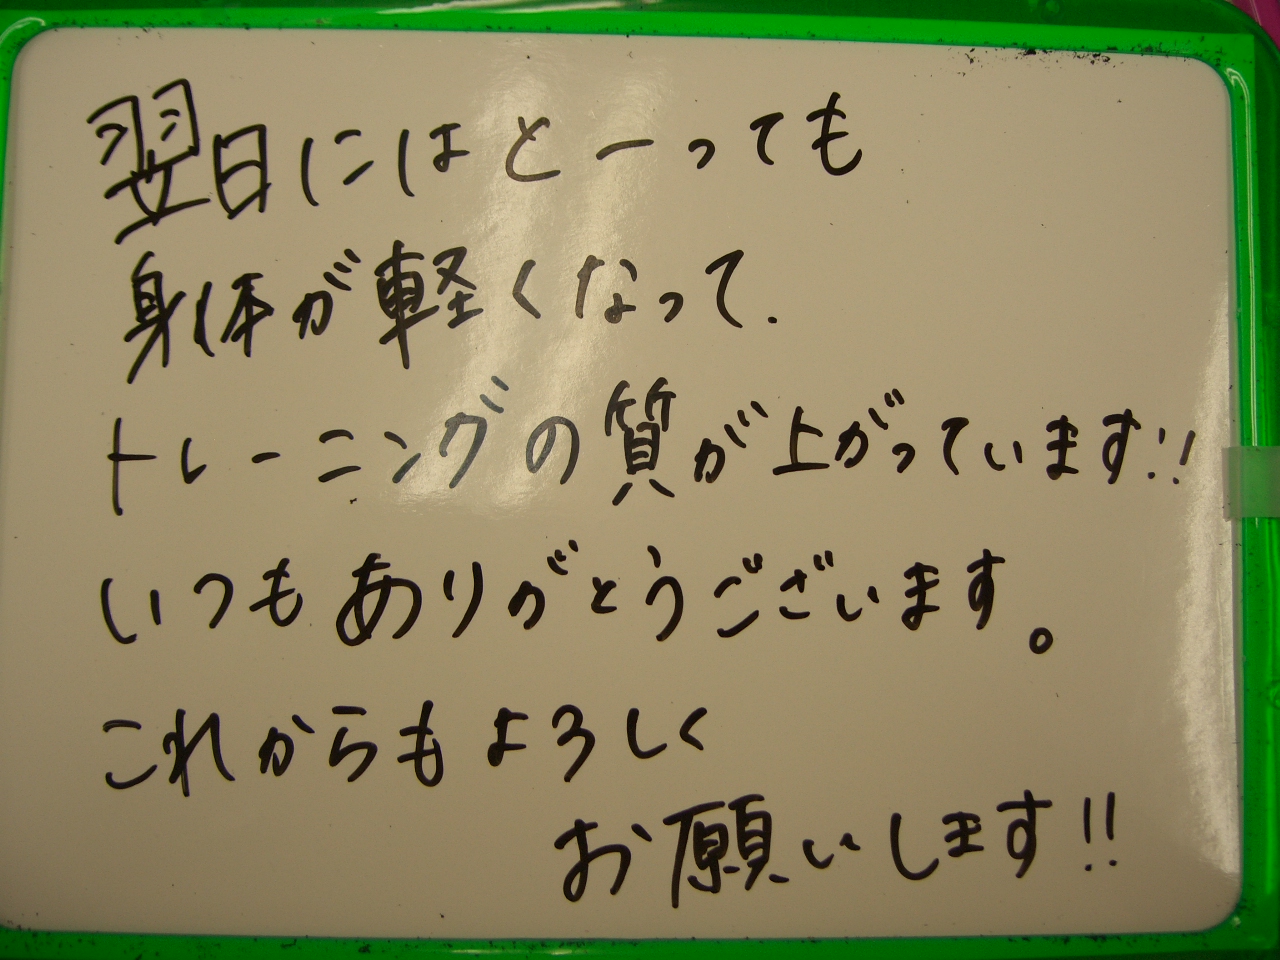 翌日にはとーっても
身体が軽くなって.
トレーニングの質が上がっています!!
いつもありがとうございます。
これからもよろしく
お願いします!!